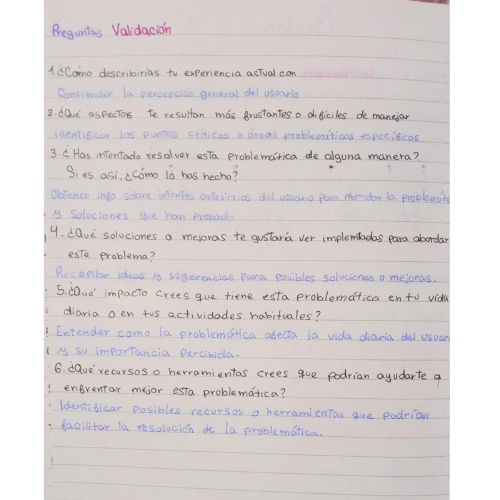 Preguntas Validación
1. ¿Cómo describirías tu experiencia actual con
Comprender la percepción general del usuario
2. ¿Qué aspectos te resultan más frustantes o difíciles de manejar
identificar los puntos críticos o áreas problemáticas específicas
3. ¿Has intentado resolver esta problemática de alguna manera?
Si es así, ¿Cómo lo has hecho?
Obtener info sobre intentos anteriores del usuario para abordar la problemática
y soluciones que han probado
4. ¿Qué soluciones o mejoras te gustaría ver implemtadas para abordar
este problema?
Recopilar ideas y sugerencias para posibles soluciones o mejoras.
5. ¿Qué impacto crees que tiene esta problemática en tu vida
diaria o en tus actividades habituales?
Entender como la problemática afecta la vida diaria del usuar
y su importancia percibida.
6. ¿Qué recursos o herramientas crees que podrían ayudarte a
enfrentar mejor esta problemática?
Identificar posibles recursos o herramientas que podrían
facilitar la resolución de la problemática.